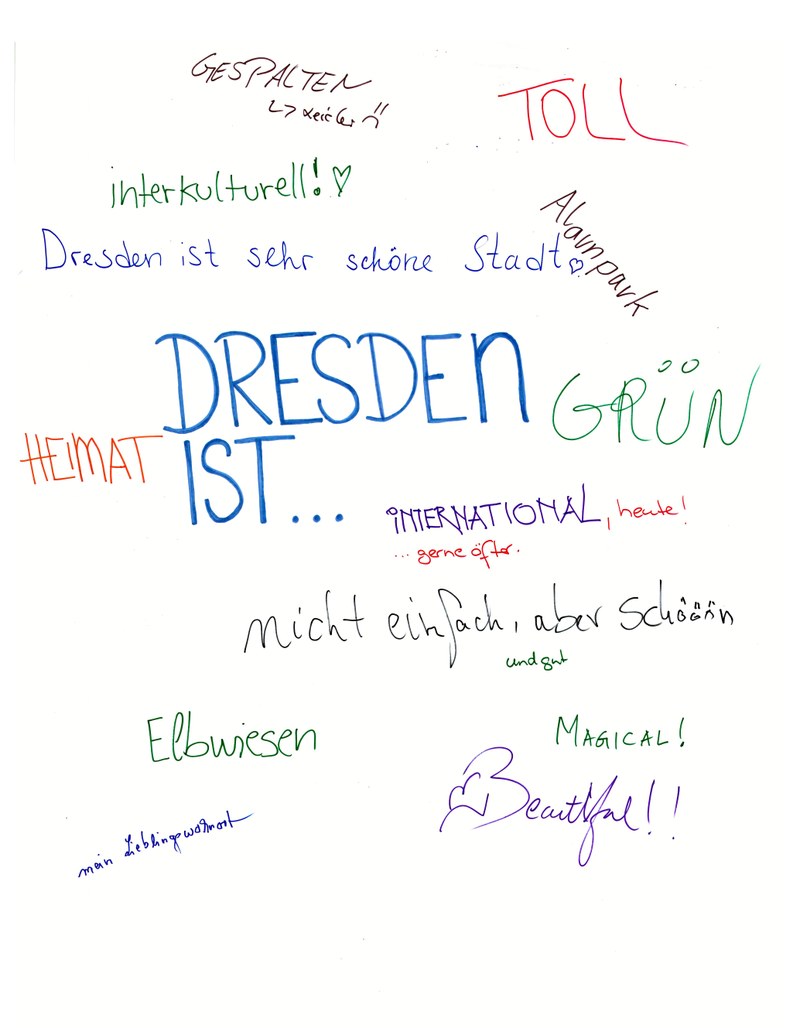 GESPALTEN
↳ leider :(
TOLL
interkulturell! ♡
Alaunpark
Dresden ist sehr schöne Stadt ♡
DRESDEN
IST...
GRÜN
HEIMAT
INTERNATIONAL, heute!
... gerne öfter.
nicht einfach, aber schööön
und gut
Elbwiesen
MAGICAL!
♡ Beautiful!!
mein Lieblingswohnort